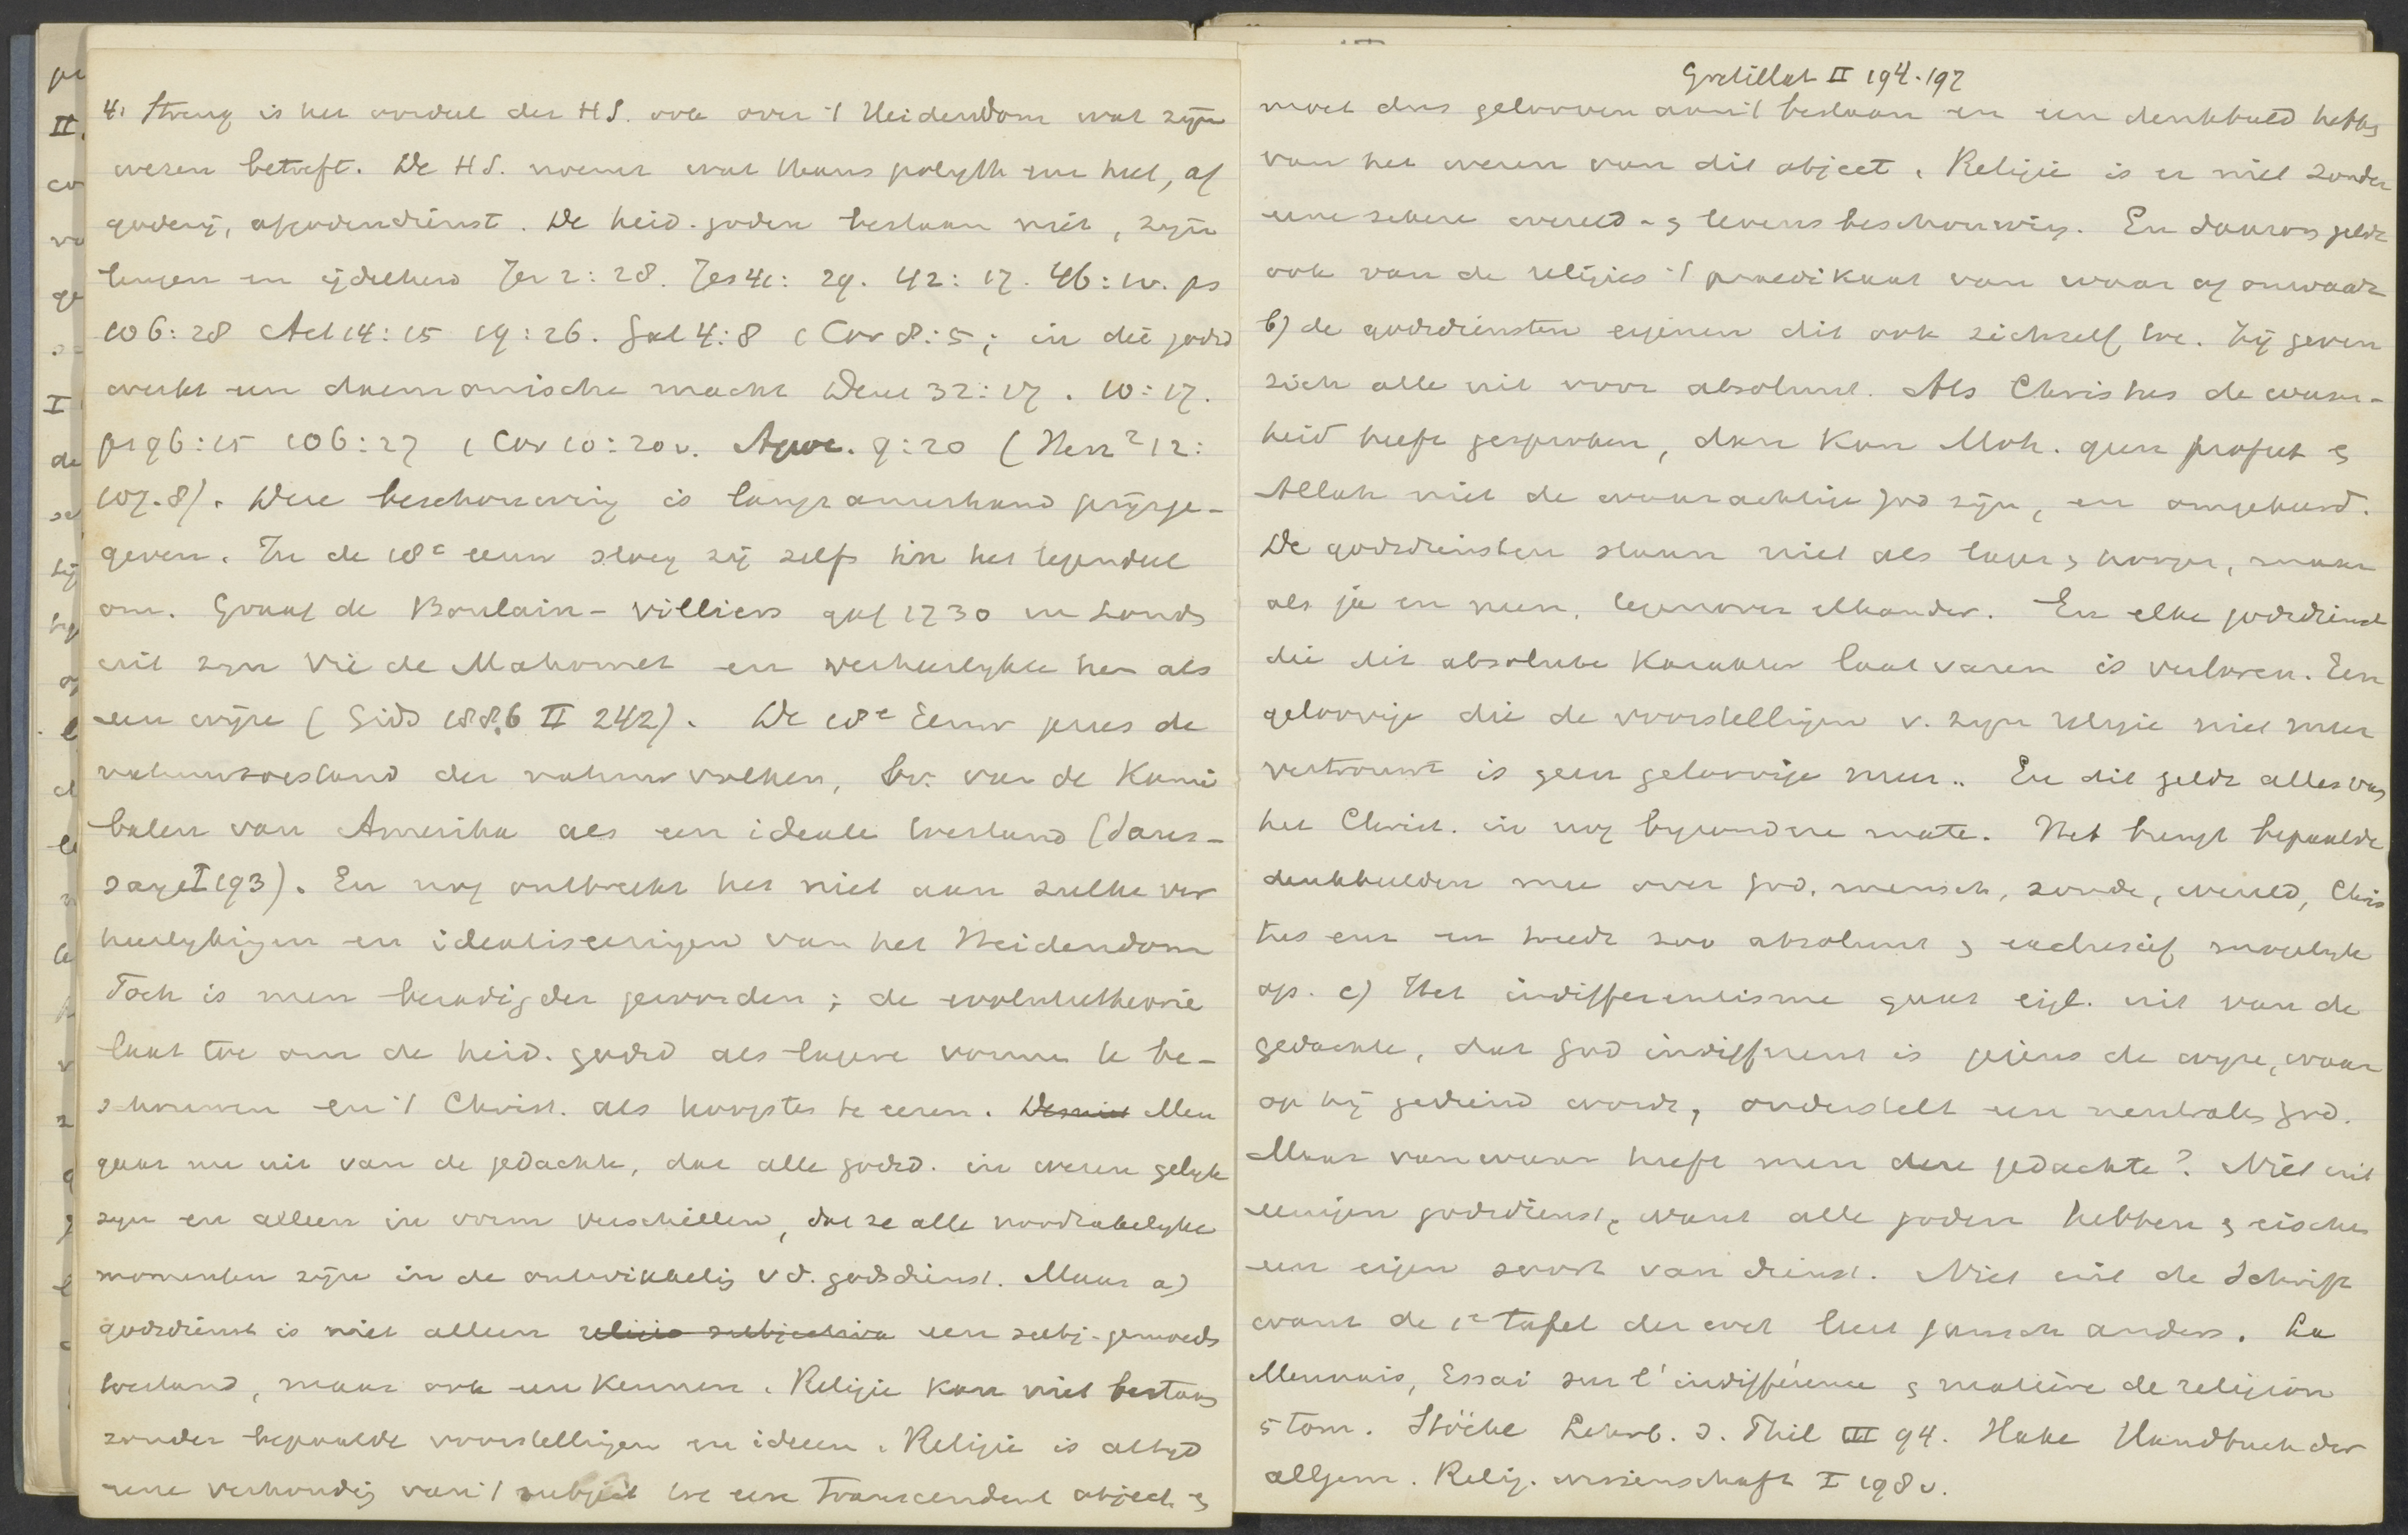 4. Streng is het oordeel der HS. ook over 't Heidendom wat zijn
wezen betreft. De HS. noemt wat thans polyth-me heet, af
goderij, afgodendienst. De heid. goden bestaan niet, zijn
leugen en ijdelheid Jer 2:28. Jes 41:29. 42:17. 46:1v. ps
106:28 Act 14:15 19:26. Gal 4:8 1 Cor 8:5; in die godsd
werkt een daemonische macht Deut 32:17. 10:17.
ps 96:15 106:27 1 Cor 10:20v. Apoc. 9:20 (Herz² 12:
107.8). Deze beschouwing is langzamerhand prijsge-
geven. In de 18e eeuw sloeg zij zelfs in het tegendeel
om. Graaf de Boulain-villiers gaf 1730 in Londen
uit zijn Vie de Mahomet en verheerlijkte hem als
een wijze (Gids 1886 II 242). De 18e Eeuw prees de
natuurtoestand der natuurvolken, bv. van de Kanni
balen van Amerika als een ideale toestand (Saus-
saye I 193). En nog ontbreekt het niet aan zulke ver
heerlijkingen en idealiseeringen van het Heidendom
Toch is men bezadigder geworden; de evolutietheorie
laat toe om de heid. godsd als lagere vormen te be-
schouwen en 't Christ. als hoogste te eeren. Men
gaat nu uit van de gedachte, dat alle godsd. in wezen gelijk
zijn en alleen in vorm verschillen, dat ze alle noodzakelijke
momenten zijn in de ontwikkeling v d. godsdienst. Maar a)
godsdienst is niet alleen religio subjectiva een subj. gemoeds
toestand, maar ook een kennen. Religie kan niet bestaan
zonder bepaalde voorstellingen en ideeen. Religie is altijd
eene verhouding van 't subject tot een transcendent object en
Gretillat II 194-197
moet dus gelooven aan 't bestaan en een denkbeeld hebben
van het wezen van dit object. Religie is er niet zonder
eene zekere wereld- en levensbeschouwing. En daarom geldt
ook van de religies 't praedikaat van waar of onwaar
b) de godsdiensten eigenen dit ook zichzelf toe. Zij geven
zich alle uit voor absoluut. Als Christus de waar-
heid heeft gesproken, dan kan Moh. geen profeet en
Allah niet de waarachtige God zijn, en omgekeerd.
De godsdiensten staan niet als lager en hooger, maar
als ja en neen, tegenover elkander. En elke godsdienst
die dit absolute karakter laat varen is verloren. Een
geloovige die de voorstellingen v. zijn religie niet meer
vertrouwt is geen geloovige meer. En dit geldt alles van
het Christ. in nog bijzondere mate. Het brengt bepaalde
denkbeelden mee over God, mensch, zonde, wereld, Chris
tus enz en treedt zoo absoluut en exclusief mogelijk
op. c) Het indifferentisme gaat eigl. uit van de
gedachte, dat God indifferent is jegens de wijze, waar
op hij gediend wordt, onderstelt een neutralen God.
Maar van waar heeft men deze gedachte? Niet uit
eenigen godsdienst, want alle goden hebben en eischen
een eigen soort van dienst. Niet uit de Schrift
want de 1e tafel der wet leert gansch anders. La
Mennais, Essai sur l'indifférence en matière de religion
5 tom. Stöckl Lehrb. d. Phil III 94. Hake Handbuch der
allgem. Relig. wissenschaft I 198v.